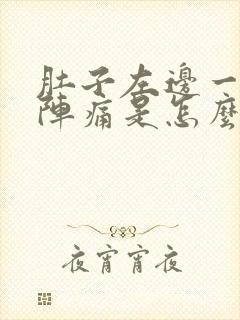 肚子左邊一
陣痛是怎麼
夜宵宵夜